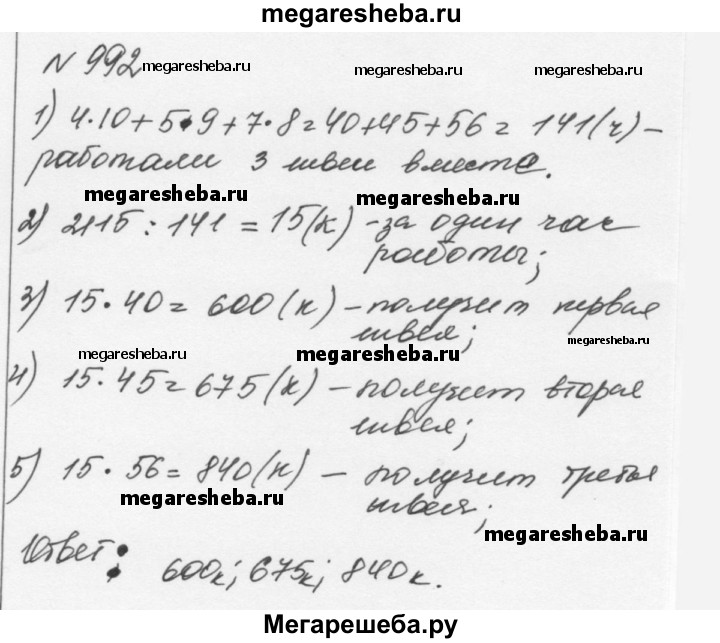 megaresheba.ru
N 992 megaresheba.ru megaresheba.ru megaresheba.ru
1) 4·10+5·9+7·8=40+45+56= 141(ч) –
работали 3 швеи вместе.
megaresheba.ru megaresheba.ru
2) 2115 : 141 = 15(к) – за один час
работы;
3) 15·40= 600(к) – получит первая
швея;
megaresheba.ru megaresheba.ru megaresheba.ru
4) 15·45=675(к) – получит вторая
швея;
5) 15·56= 840(к) – получит третья
megaresheba.ru швея;
megaresheba.ru
Ответ: 600к; 675к; 840к.
Мегарешеба.ру